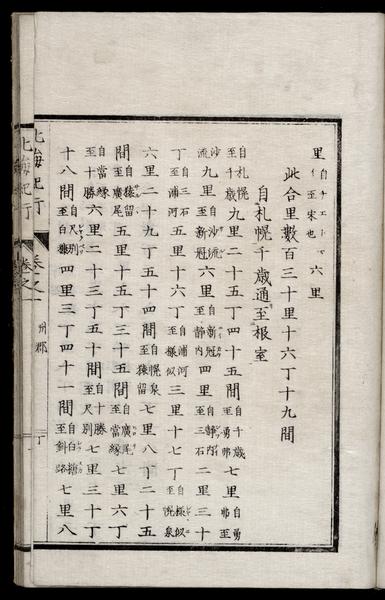 里 自 至宋也 六里
此合里數百三十里十六丁十九間
自札幌千歳通至根室
自札幌至千歳 九里二十五丁四十五間 自千歳至勇弗 七里 自勇弗至
沙流 九里 自沙流至新冠 自新冠至靜内 四里 自靜内至三石 二里三十
丁 自三石至浦河 五里十六丁 自浦河至樣似 三里十七丁 自樣似至幌泉
六里二十九丁五十四間 自幌泉至猿留 七里八丁二十五
間 自猿留至廣尾 五里十五丁三十五間 自廣尾至當縁 七里六丁
自當縁至十勝 六里二十三丁五十間 自十勝至尺別 七里三十丁
十八間 自尺別至白糠 四里三丁四十一間 自白糠至釧路 七里八
北海紀行 卷之一
州郡
丁
北海紀行 卷之